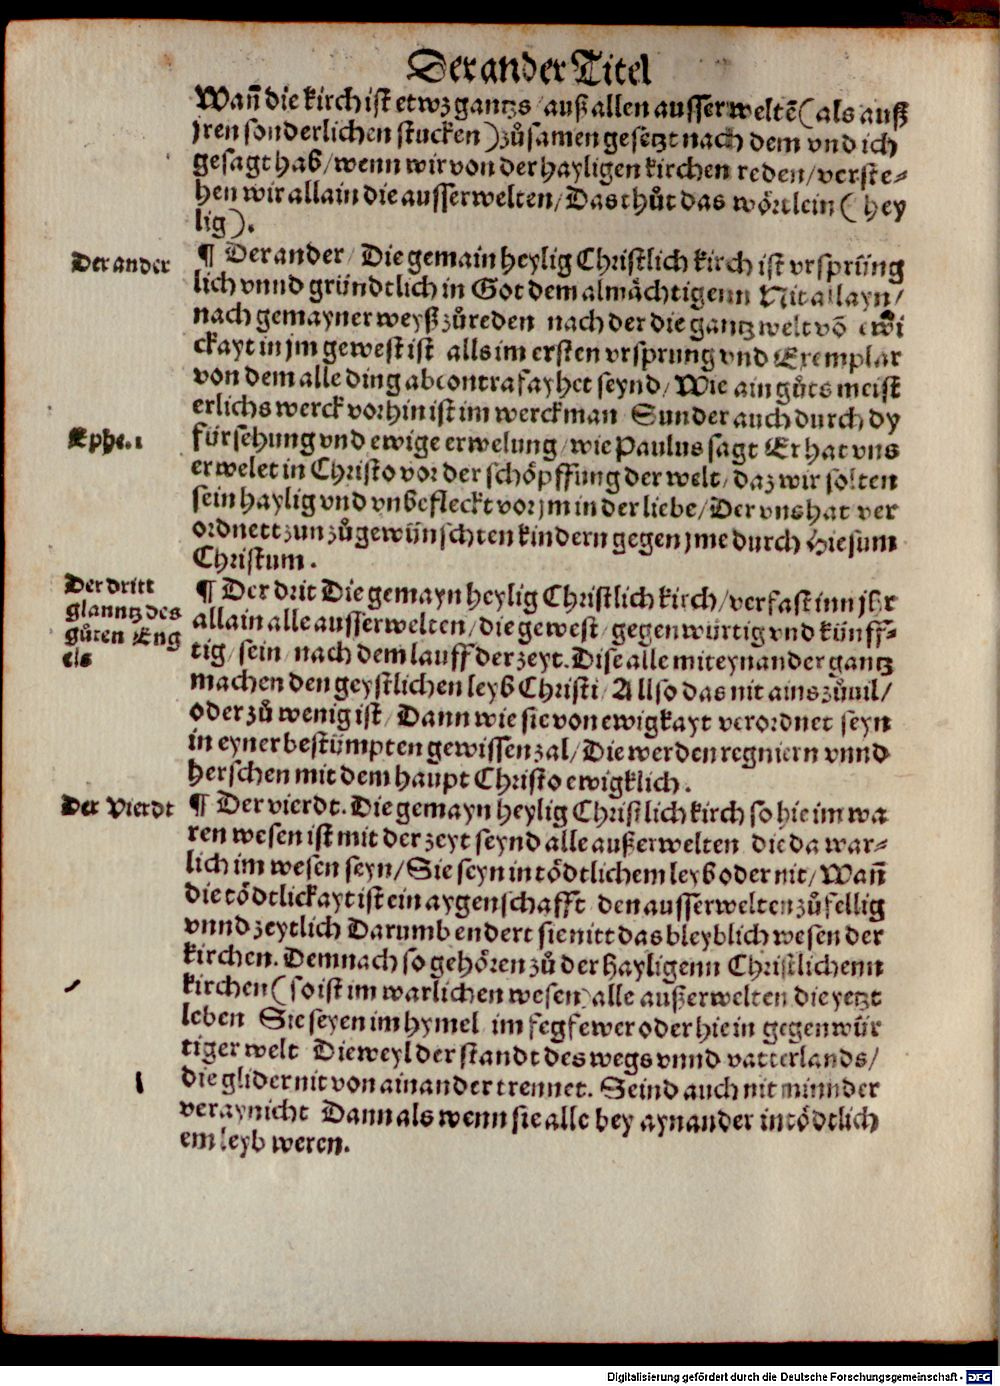 Der ander Titel
Wañ die kirch ist etwz gantzs / auß allen ausserweltē (als auß
jren sonderlichen stucken) zůsamen gesetzt nach dem vnd ich
gesagt hab / wenn wir von der hayligen kirchen reden / verste⸗
hen wir allain die ausserwelten / Das thůt das wörtlein (hey
lig).
Der ander
¶ Der ander / Die gemain heylig Christlich kirch ist vrsprüng
lich vnnd gründtlich in Got dem almächtigenn Nit allayn /
nach gemayner weyß zůreden nach der die gantz welt võ ewi
ckayt in jm gewest ist alls im ersten vrsprung vnd Exemplar
von dem alle ding abcontrafayhet seynd / Wie ain gůts meist
erlichs werck vorhin ist im werckman Sunder auch durch dy
Ephe. 1
fürsehung vnd ewige erwelung / wie Paulus sagt Er hat vns
erwelet in Christo vor der schöpffung der welt / daz wir solten
sein haylig vnd vnbefleckt vor jm in der liebe / Der vns hat ver
ordnett zun zůgewünschten kindern gegen jme durch Hiesum
Christum.
Der dritt
glanntz des
gůten Eng
els
¶ Der drit Die gemayn heylig Christlich kirch / verfast inn jhr
allain alle ausserwelten / die gewest / gegenwürtig vnd künff⸗
tig / sein / nach dem lauff der zeyt. Dise alle miteynander gantz
machen den geystlichen leyb Christi / Allso das nit ains zůuil /
oder zů wenig ist / Dann wie sie von ewigkayt verordnet seyn
in eyner bestümpten gewissen zal / Die werden regniern vnnd
herschen mit dem haupt Christo ewigklich.
Der Vierdt
¶ Der vierdt. Die gemayn heylig Christlich kirch so hie im wa
ren wesen ist mit der zeyt seynd alle außerwelten die da war⸗
lich im wesen seyn / Sie seyn in tödtlichem leyb oder nit / Wañ
die tödtlickayt ist ein aygenschafft den ausserwelten zůfellig
vnnd zeytlich Darumb endert sie nitt das bleyblich wesen der
kirchen. Demnach so gehören zů der hayligenn Christlichenn
kirchen (so ist im warlichen wesen) alle außerwelten die yetzt
leben Sie seyen im hymel im fegfewer oder hie in gegenwür
tiger welt Dieweyl der standt des wegs vnnd vatterlands /
die glider nit von ainander trennet. Seind auch nit minnder
veraynicht Dann als wenn sie alle bey aynander in tödtlich
em leyb weren.
Digitalisierung gefördert durch die Deutsche Forschungsgemeinschaft - DFG